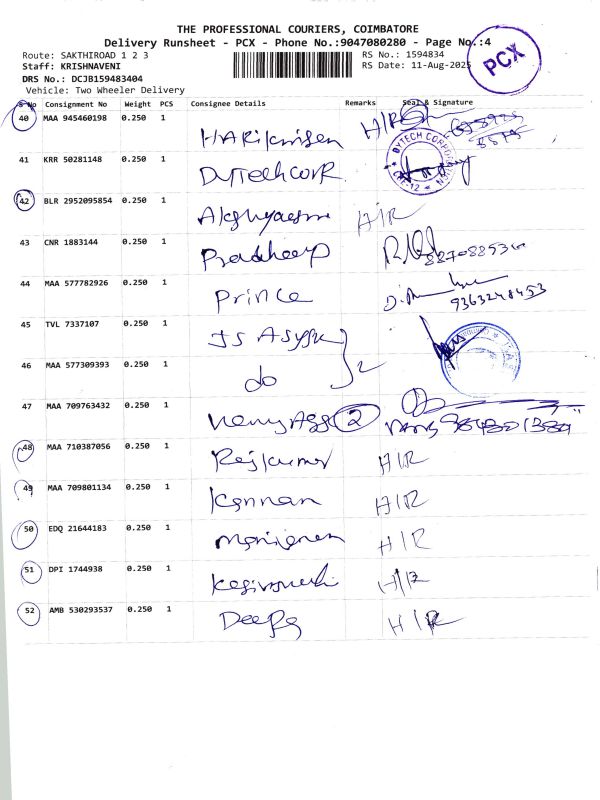 THE PROFESSIONAL COURIERS, COIMBATORE
Delivery Runsheet - PCX - Phone No.:9047080280 - Page No.:4
PCX
Route: SAKTHIROAD 1 2 3
RS No.: 1594834
Staff: KRISHNAVENI
RS Date: 11-Aug-2025
DRS No.: DCJB159483404
Vehicle: Two Wheeler Delivery
S No Consignment No Weight PCS Consignee Details Remarks Seal & Signature
40 MAA 945460198 0.250 1 H/R
41 KRR 50281148 0.250 1 DyTech CorP.
DYTECH CORPORATION
CBE-12
42 BLR 2952095854 0.250 1 H/R
43 CNR 1883144 0.250 1 Pradheep
44 MAA 577782926 0.250 1 Prince
9363248453
45 TVL 7337107 0.250 1
46 MAA 577309393 0.250 1 do 2
47 MAA 709763432 0.250 1 2
48 MAA 710387056 0.250 1 Rajkumar H/R
49 MAA 709801134 0.250 1 Kannan H/R
50 EDQ 21644183 0.250 1 H/R
51 DPI 1744938 0.250 1 H/R
52 AMB 530293537 0.250 1 Deepa H/R